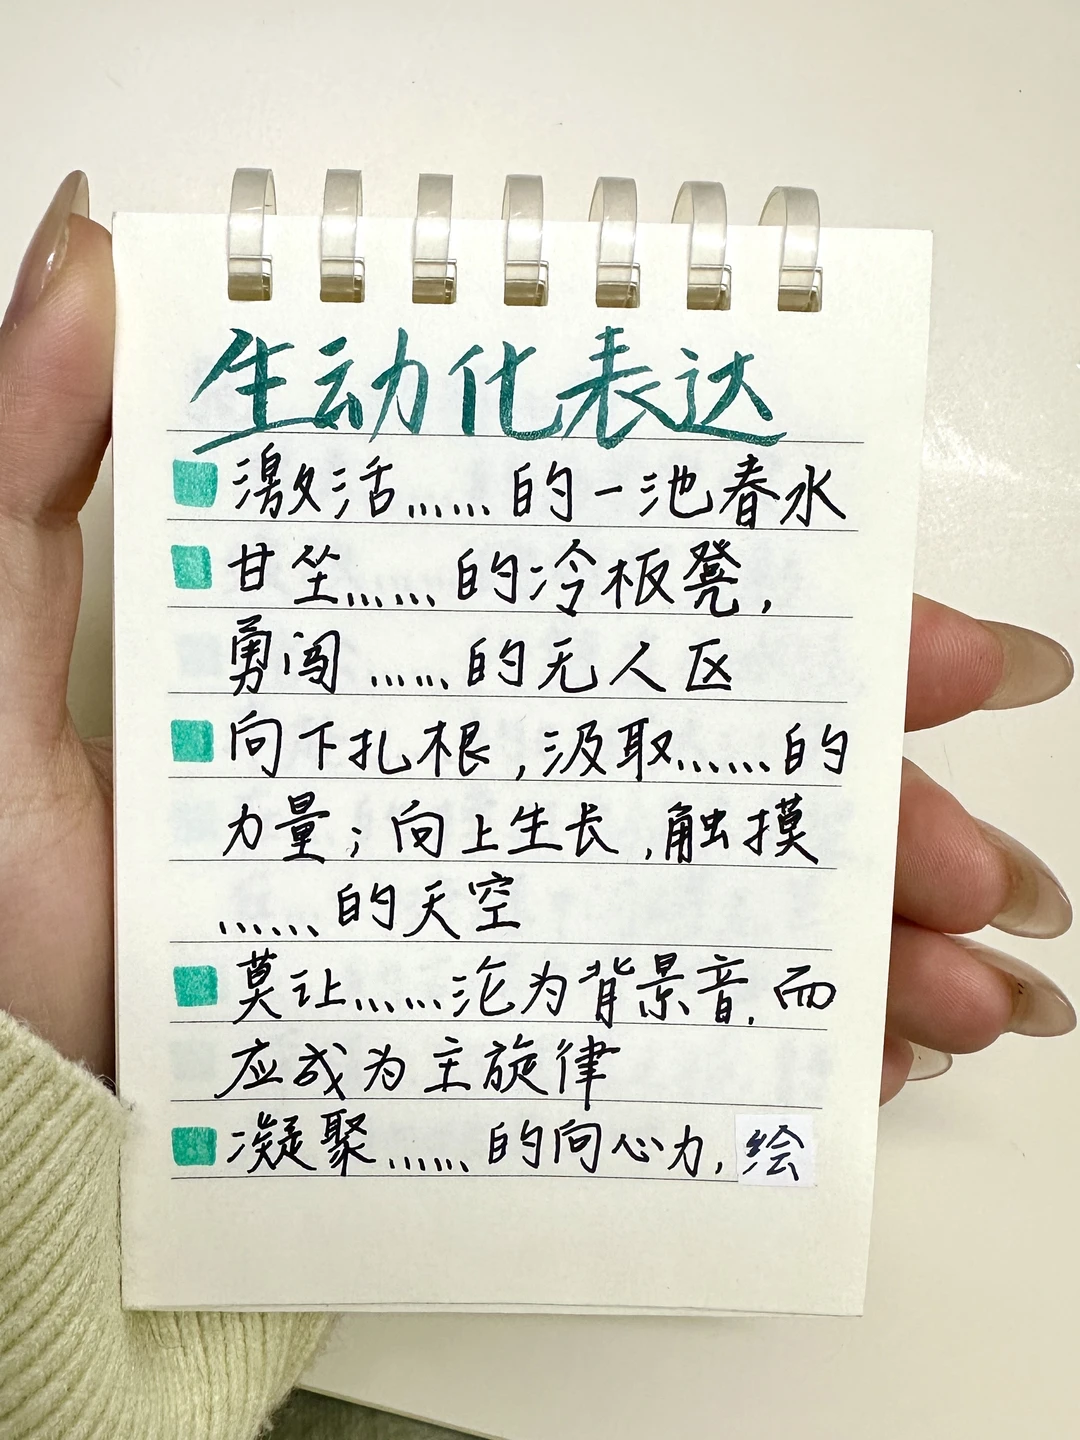 生动化表达
激活......的一池春水
甘坐......的冷板凳，
勇闯......的无人区
向下扎根，汲取......的
力量；向上生长，触摸
......的天空
莫让......沦为背景音，而
应成为主旋律
凝聚......的向心力，绘